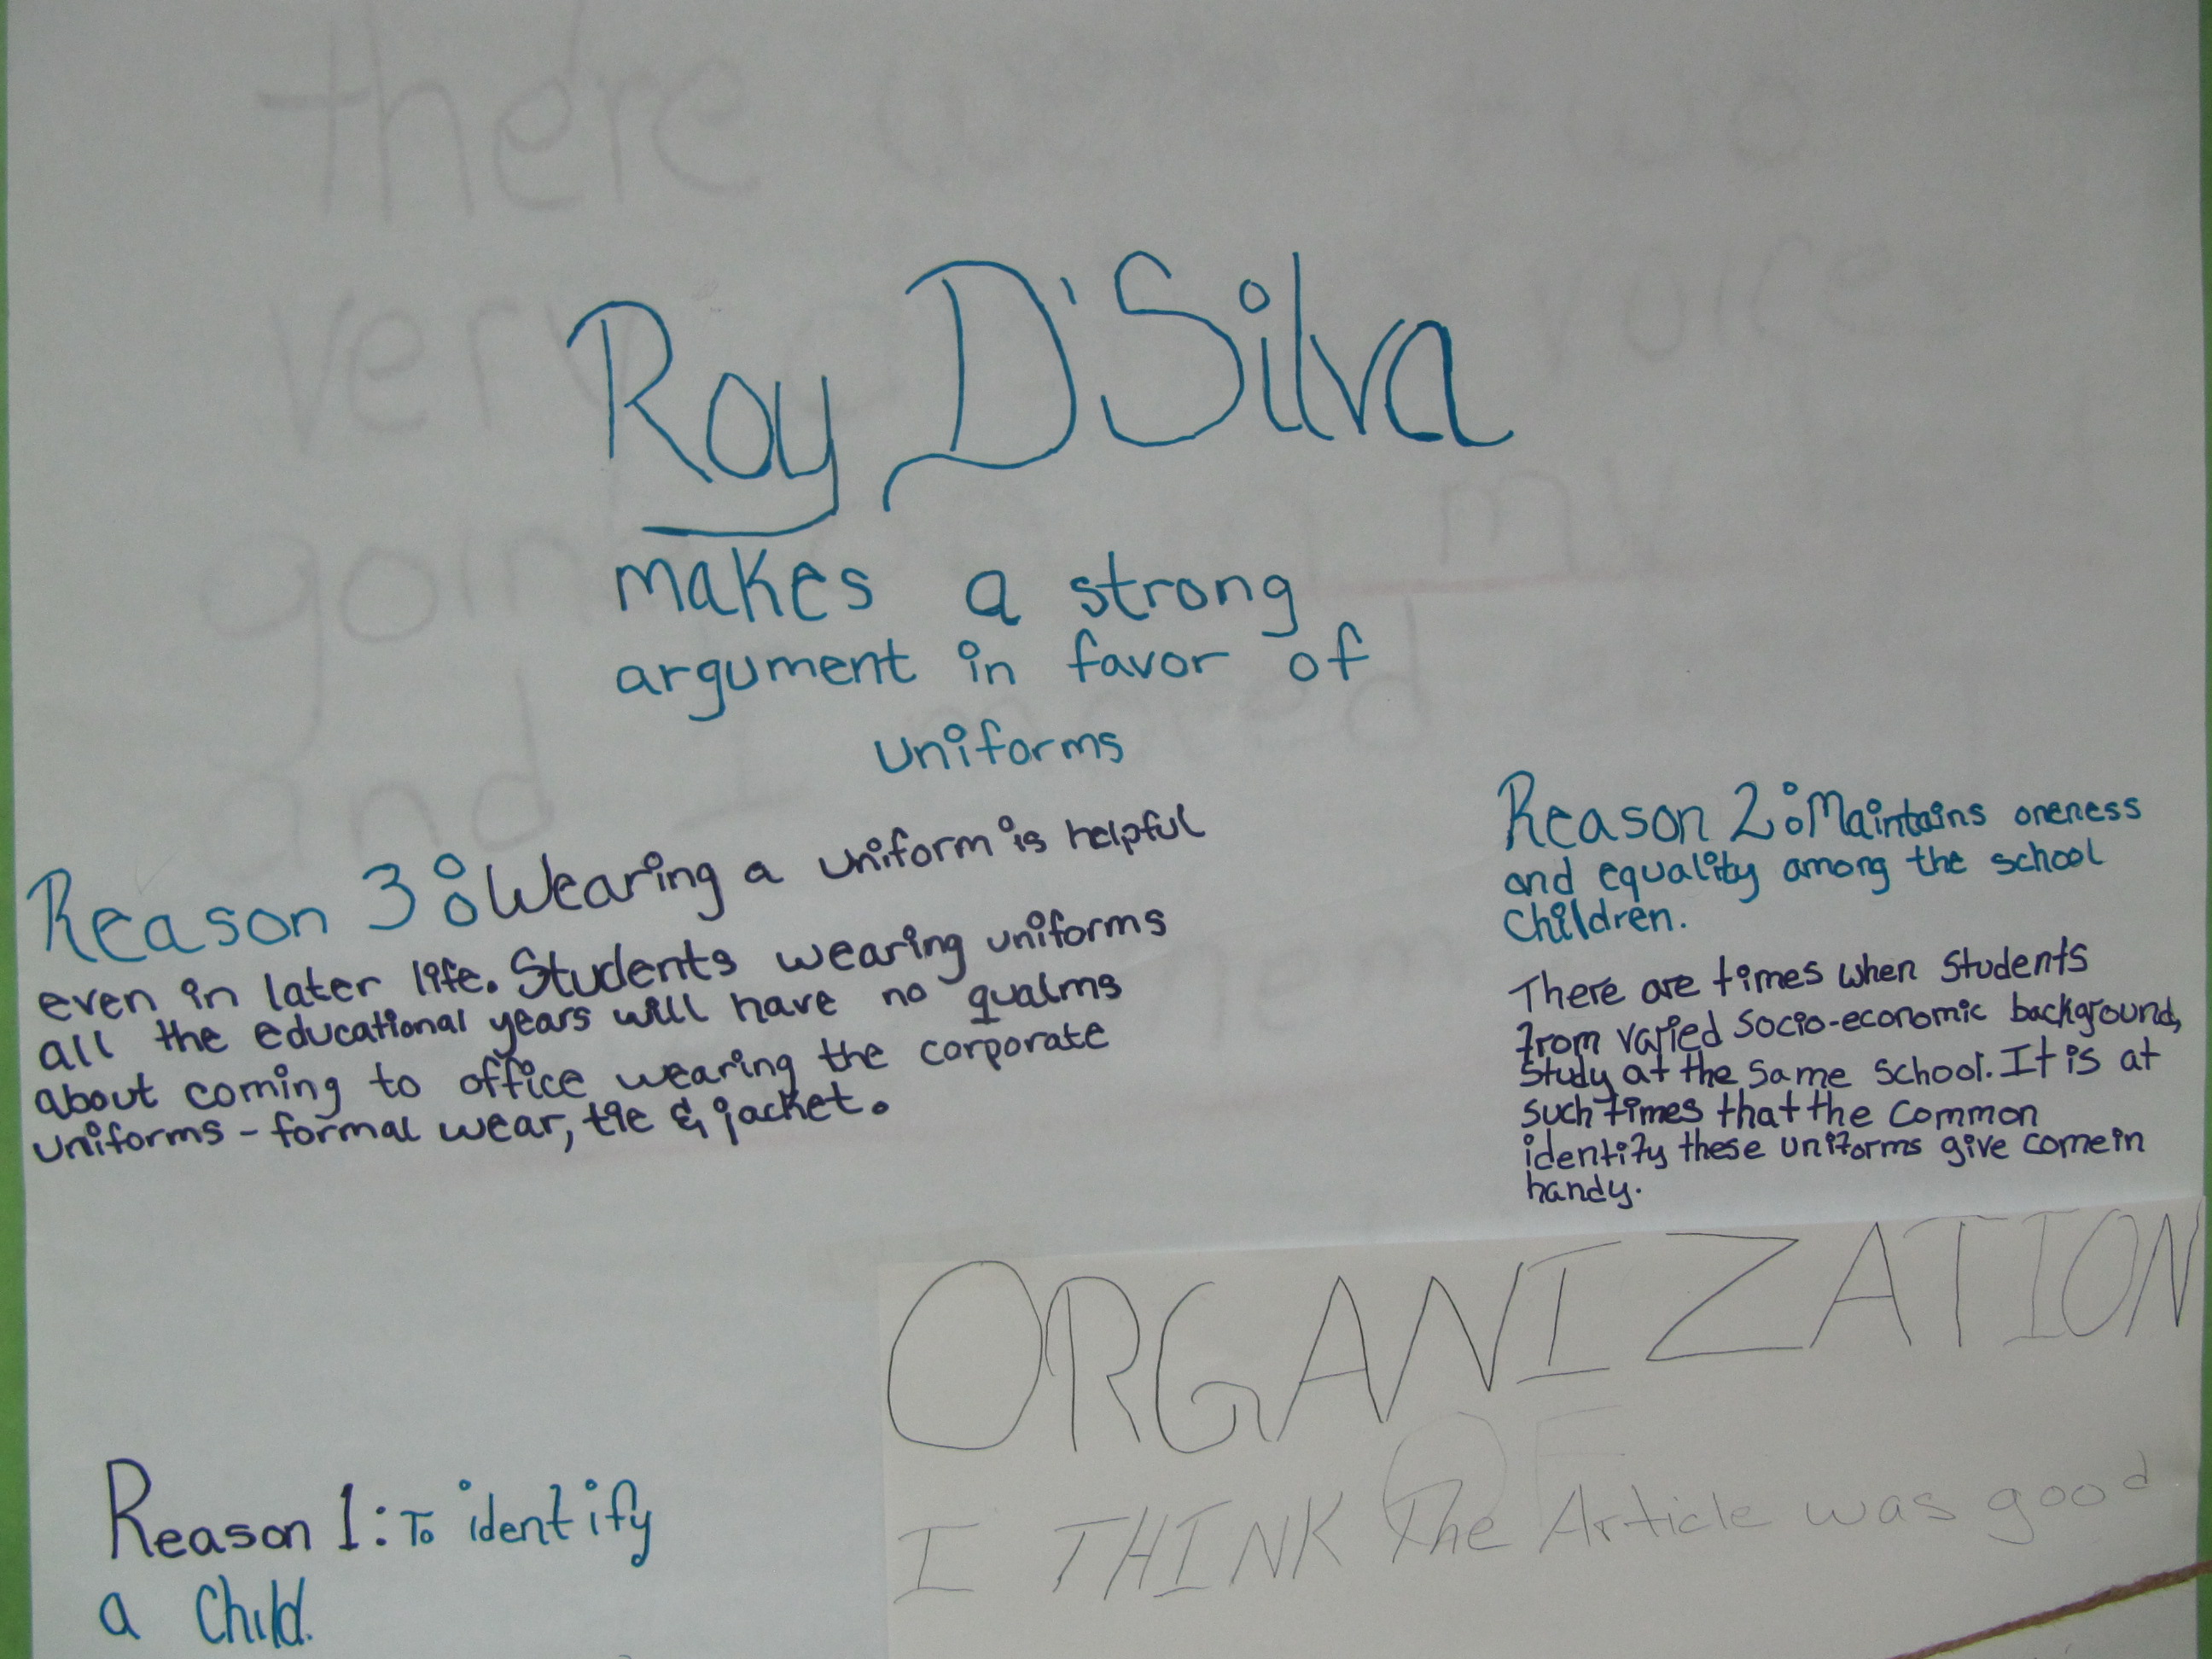 Roy D'Silva
makes a strong
argument in favor of
uniforms
Reason 3: Wearing a uniform is helpful
even in later life. Students wearing uniforms
all the educational years will have no qualms
about coming to office wearing the corporate
uniforms - formal wear, tie & jacket.
Reason 2: Maintains oneness
and equality among the school
Children.
There are times when Students
from varied socio-economic background,
Study at the same school. It is at
such times that the common
identity these uniforms give come in
handy.
Reason 1: To identify
a Child.
ORGANIZATION
I THINK The Article was good
there two
very voice
going my
and I moved